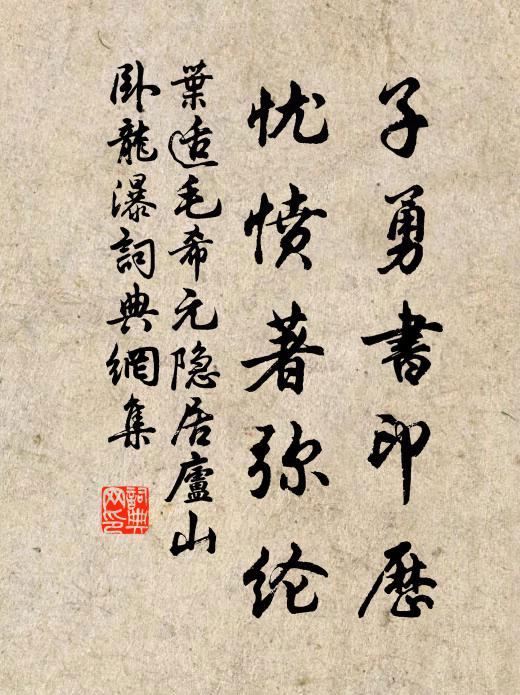 子勇書印歷
忧愤著弥纶
葉适毛希元隐居廬山
卧龍瀑詞典網集
詞典網印